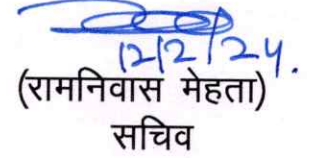 12/2/24.
(रामनिवास मेहता)
सचिव